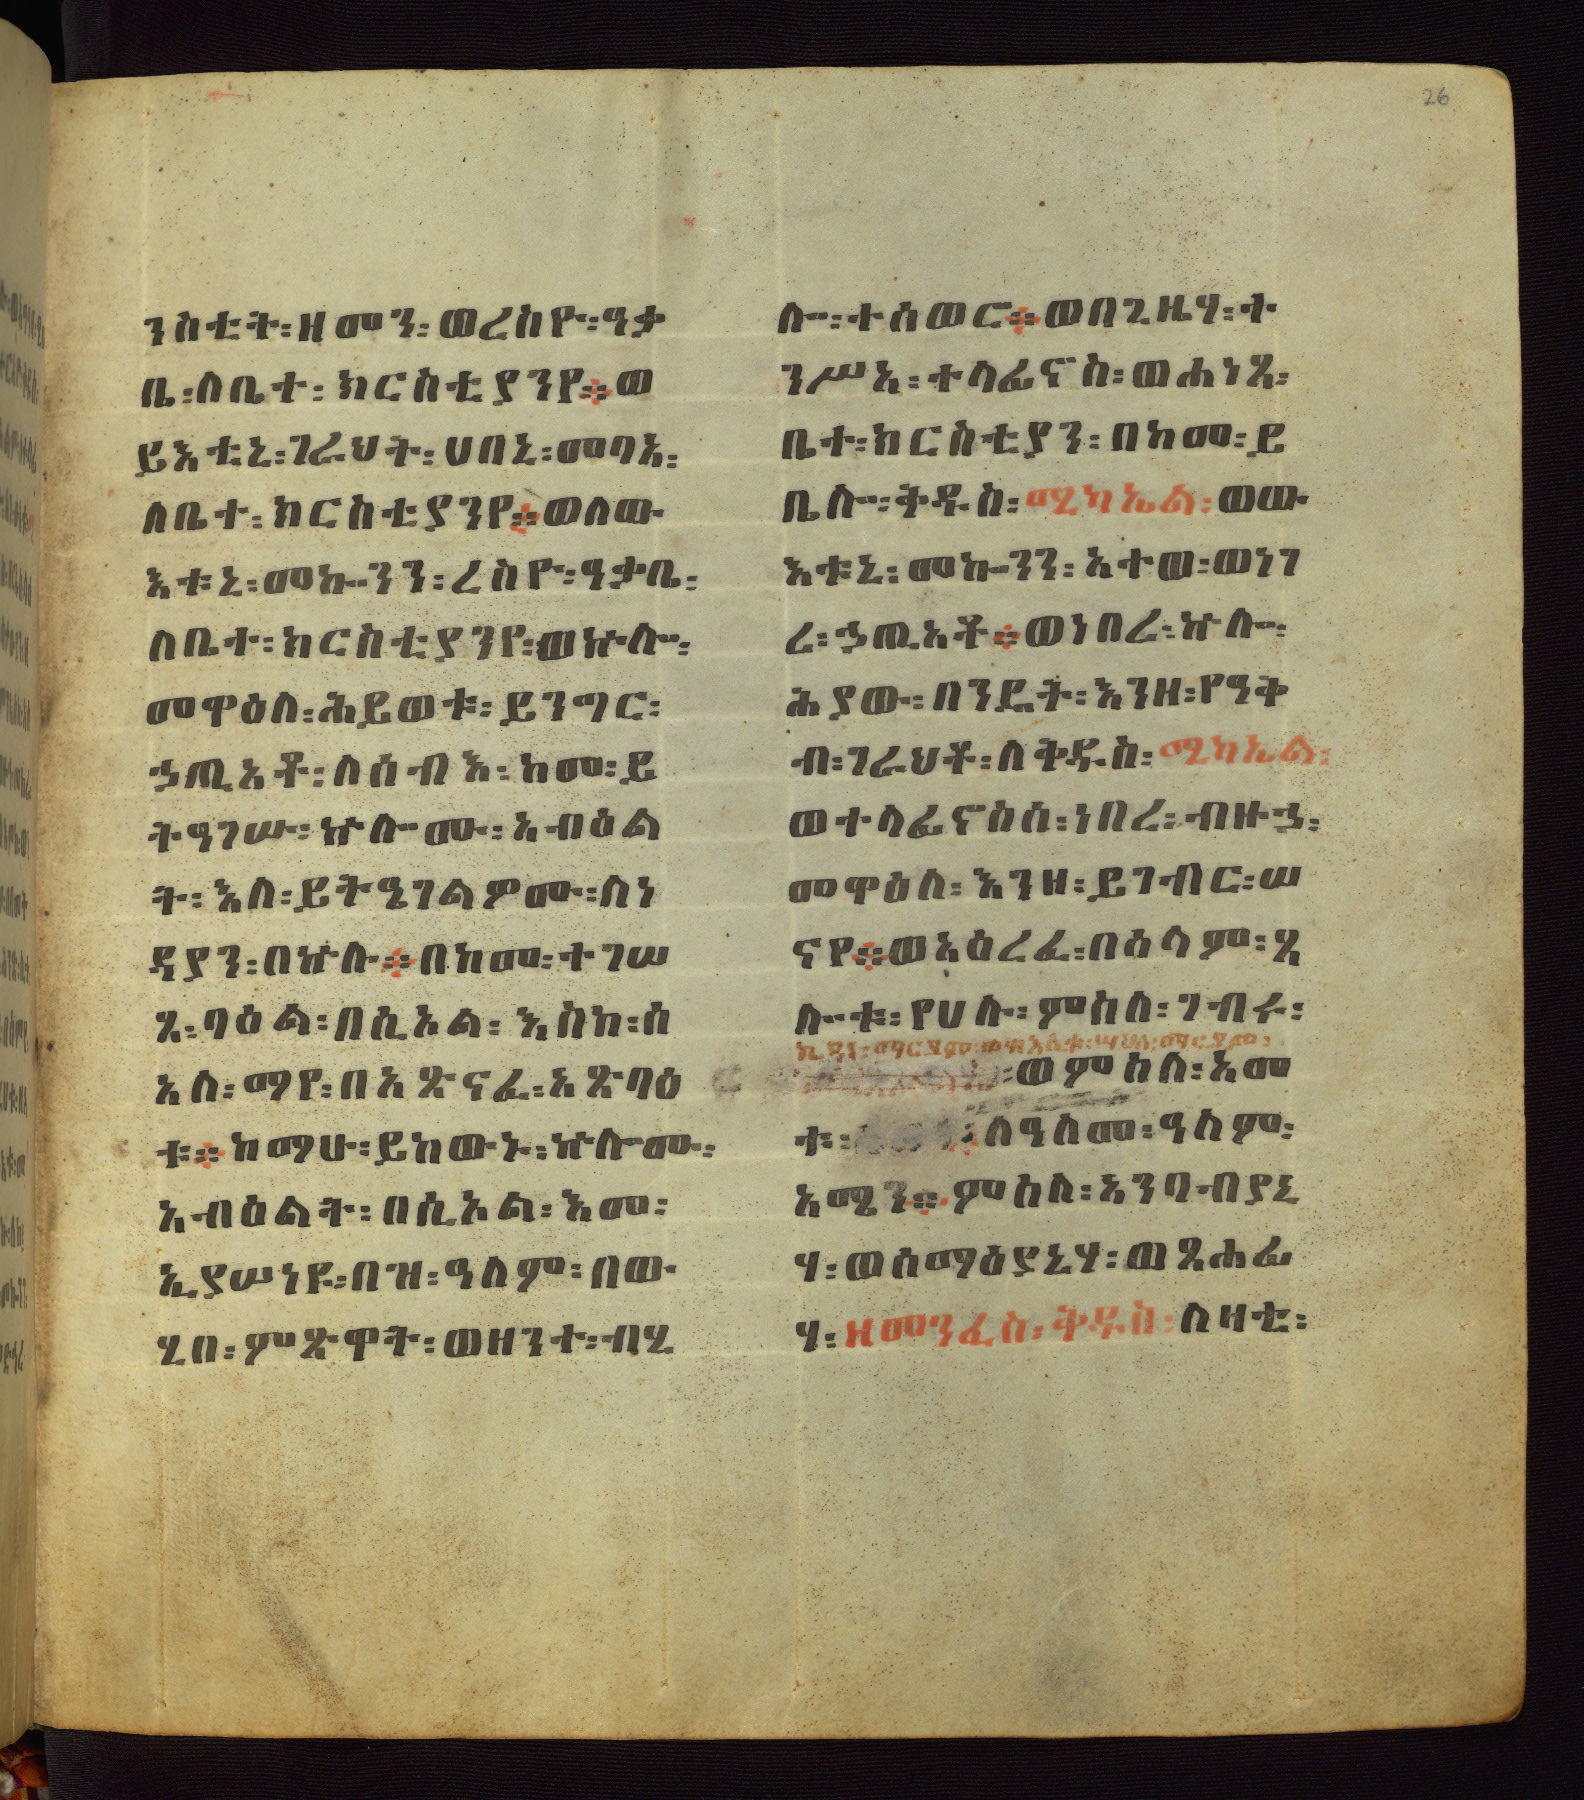 26
ንስቲት፡ዘመን፡ወረስዮ፡ዓቃ
ቤ፡ለቤተ፡ክርስቲያንየ፨ወ
ይእቲኒ፡ገራህት፡ሀበኒ፡መባአ፡
ለቤተ፡ክርስቲያንየ፨ወለው
እቱኒ፡መኰንን፡ረስዮ፡ዓቃቤ፡
ለቤተ፡ክርስቲያንየ፡ወኵሎ፡
መዋዕለ፡ሕይወቱ፡ይንግር፡
ኃጢአቶ፡ለሰብእ፡ከመ፡ይ
ትዓገሡ፡ኵሎሙ፡አብዕል
ት፡እለ፡ይትዔገልዎሙ፡ለነ
ዳያን፡በኵሉ፨በከመ፡ተገሠ
ጸ፡ባዕል፡በሲኦል፡እስከ፡ሰ
አለ፡ማየ፡በአጽናፈ፡አጽባዕ
ቱ፨ከማሁ፡ይከውኑ፡ኵሎሙ፡
አብዕልት፡በሲኦል፡እመ፡
ኢያሠነዩ፡በዝ፡ዓለም፡በው
ሂበ፡ምጽዋት፡ወዘንተ፡ብሂ
ሎ፡ተሰወር፨ወበጊዜሃ፡ተ
ንሥአ፡ተላፊኖስ፡ወሐነጸ፡
ቤተ፡ክርስቲያን፡በከመ፡ይ
ቤሎ፡ቅዱስ፡ሚካኤል፡ወው
እቱኒ፡መኰንን፡አተወ፡ወነገ
ረ፡ኃጢአቶ፨ወነበረ፡ኵሎ፡
ሕያው፡በንዴት፡እንዘ፡የዓቅ
ብ፡ገራህቶ፡ለቅዱስ፡ሚካኤል፡
ወተላፊኖስሰ፡ነበረ፡ብዙኃ፡
መዋዕለ፡እንዘ፡ይገብር፡ሠ
ናየ፨ወአዕረፈ፡በዕላም፡ጸ
ሎቱ፡የሀሉ፡ምስለ፡ገብሩ፡
፡ወምስለ፡አመ
ቱ፡ ለዓለመ፡ዓለም፡
አሜን፨ምስለ፡አንባብያኒ
ሃ፡ወሰማዕያኒሃ፡ወጸሐፊ
ሃ፡ዘመንፈስ፡ቅዱስ፡ለዛቲ፡